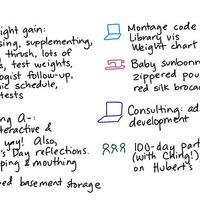 ight gain:
sing, supplementing,
thrush, lots of
s, test weights,
ogist follow-up,
ic schedule,
tests
ng A-:
teractive &
yay! Also,
s Day reflections.
ping & mouthing
ed basement storage
Montage code
Library vis
Weight chart
Baby sunbonn
zippered pou
red silk broca
Consulting: ad
development
100-day part
(with Ching!)
on Hubert's